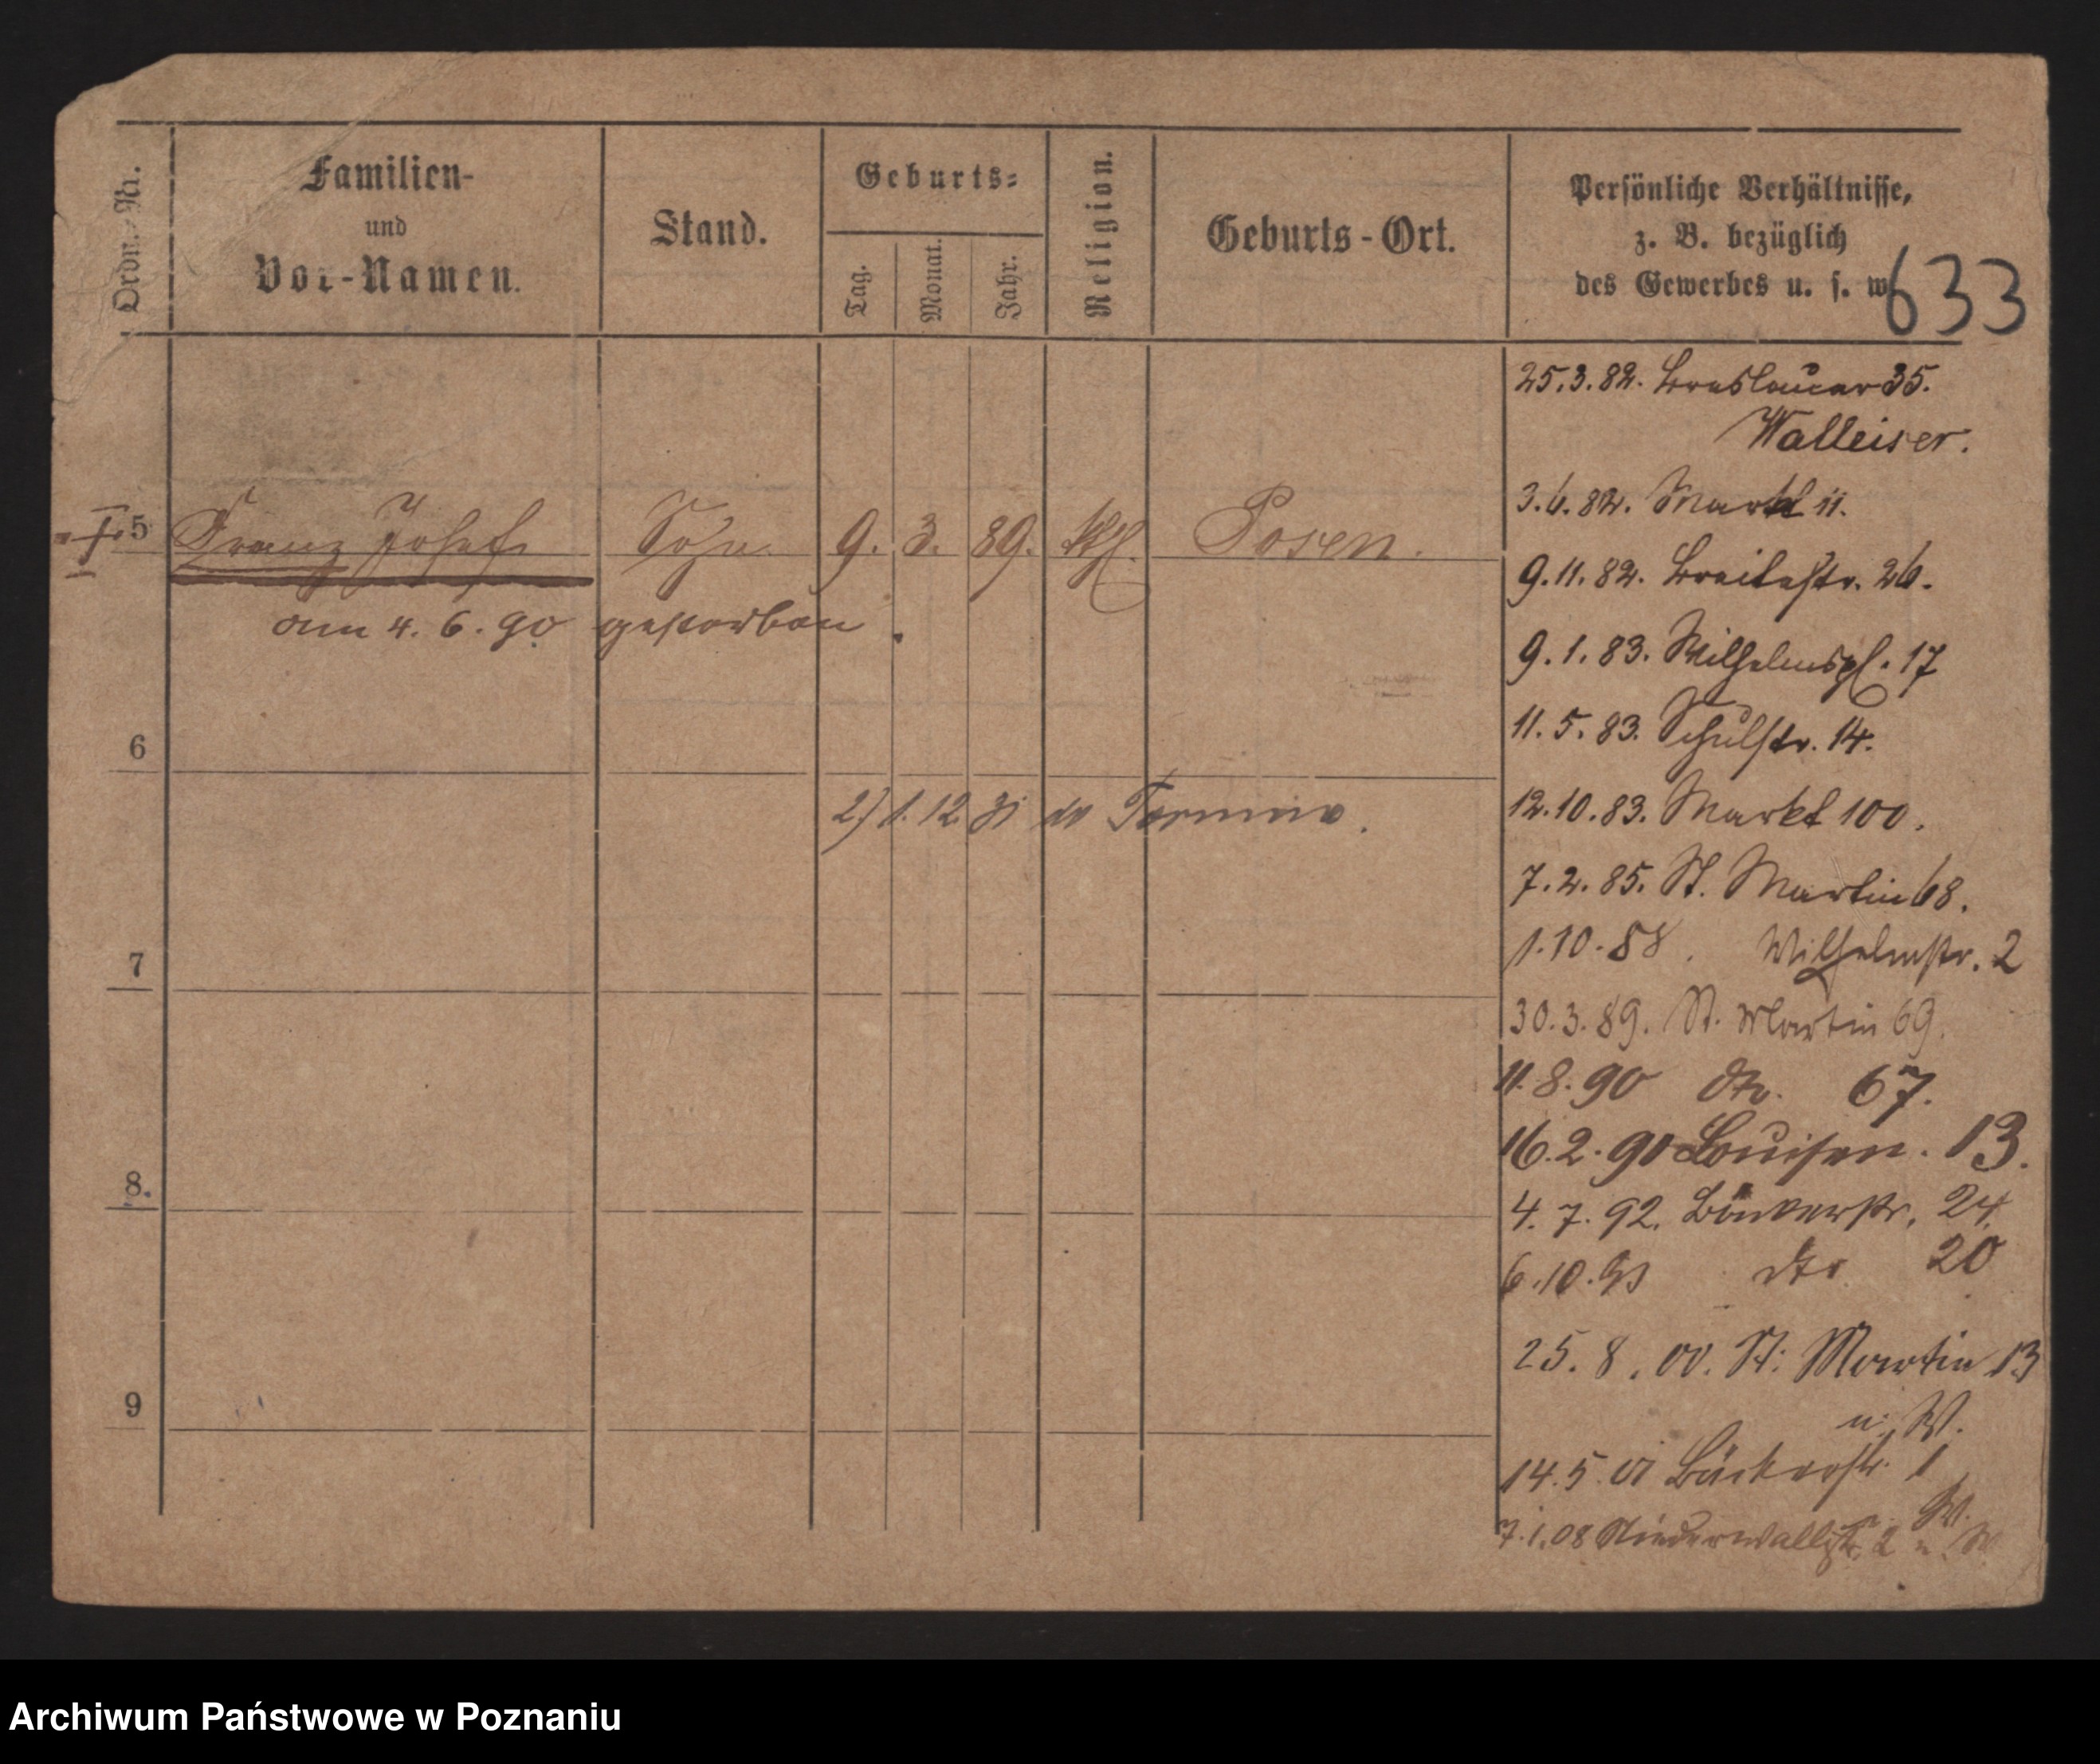 Ordn.-Nr.
Familien-
und
Vor-Namen.
Stand.
Geburts-
Tag.
Monat.
Jahr.
Religion.
Geburts-Ort.
Persönliche Verhältnisse,
z. B. bezüglich
des Gewerbes u. s. w.
633
25.3.82. Breslauer 35.
Walleiser.
3.6.82. Markt 11.
5 Franz Josef Sohn 9. 3. 89. kth. Posen.
9.11.82. Breitestr. 26.
am 4. 6. 90 gestorben.
9.1.83. Wilhelmspl. 17
11.5.83. Schulstr. 14.
6
2) 1. 12
12.10.83. Markt 100.
7.2.85. St. Martin 68.
1.10.88. Wilhelmstr. 2
7
30.3.89. St. Martin 69.
11.8.90 dto. 67.
16.2.91 Louisen. 13.
8.
4.7.92. Bäckerstr. 24.
6.10. dto 20
25.8.00. St. Martin 13
9
u. W.
14.5.01 Bäckerstr. 1
W.
7.1.08 Niederwallstr. 2 u. W.
Archiwum Państwowe w Poznaniu